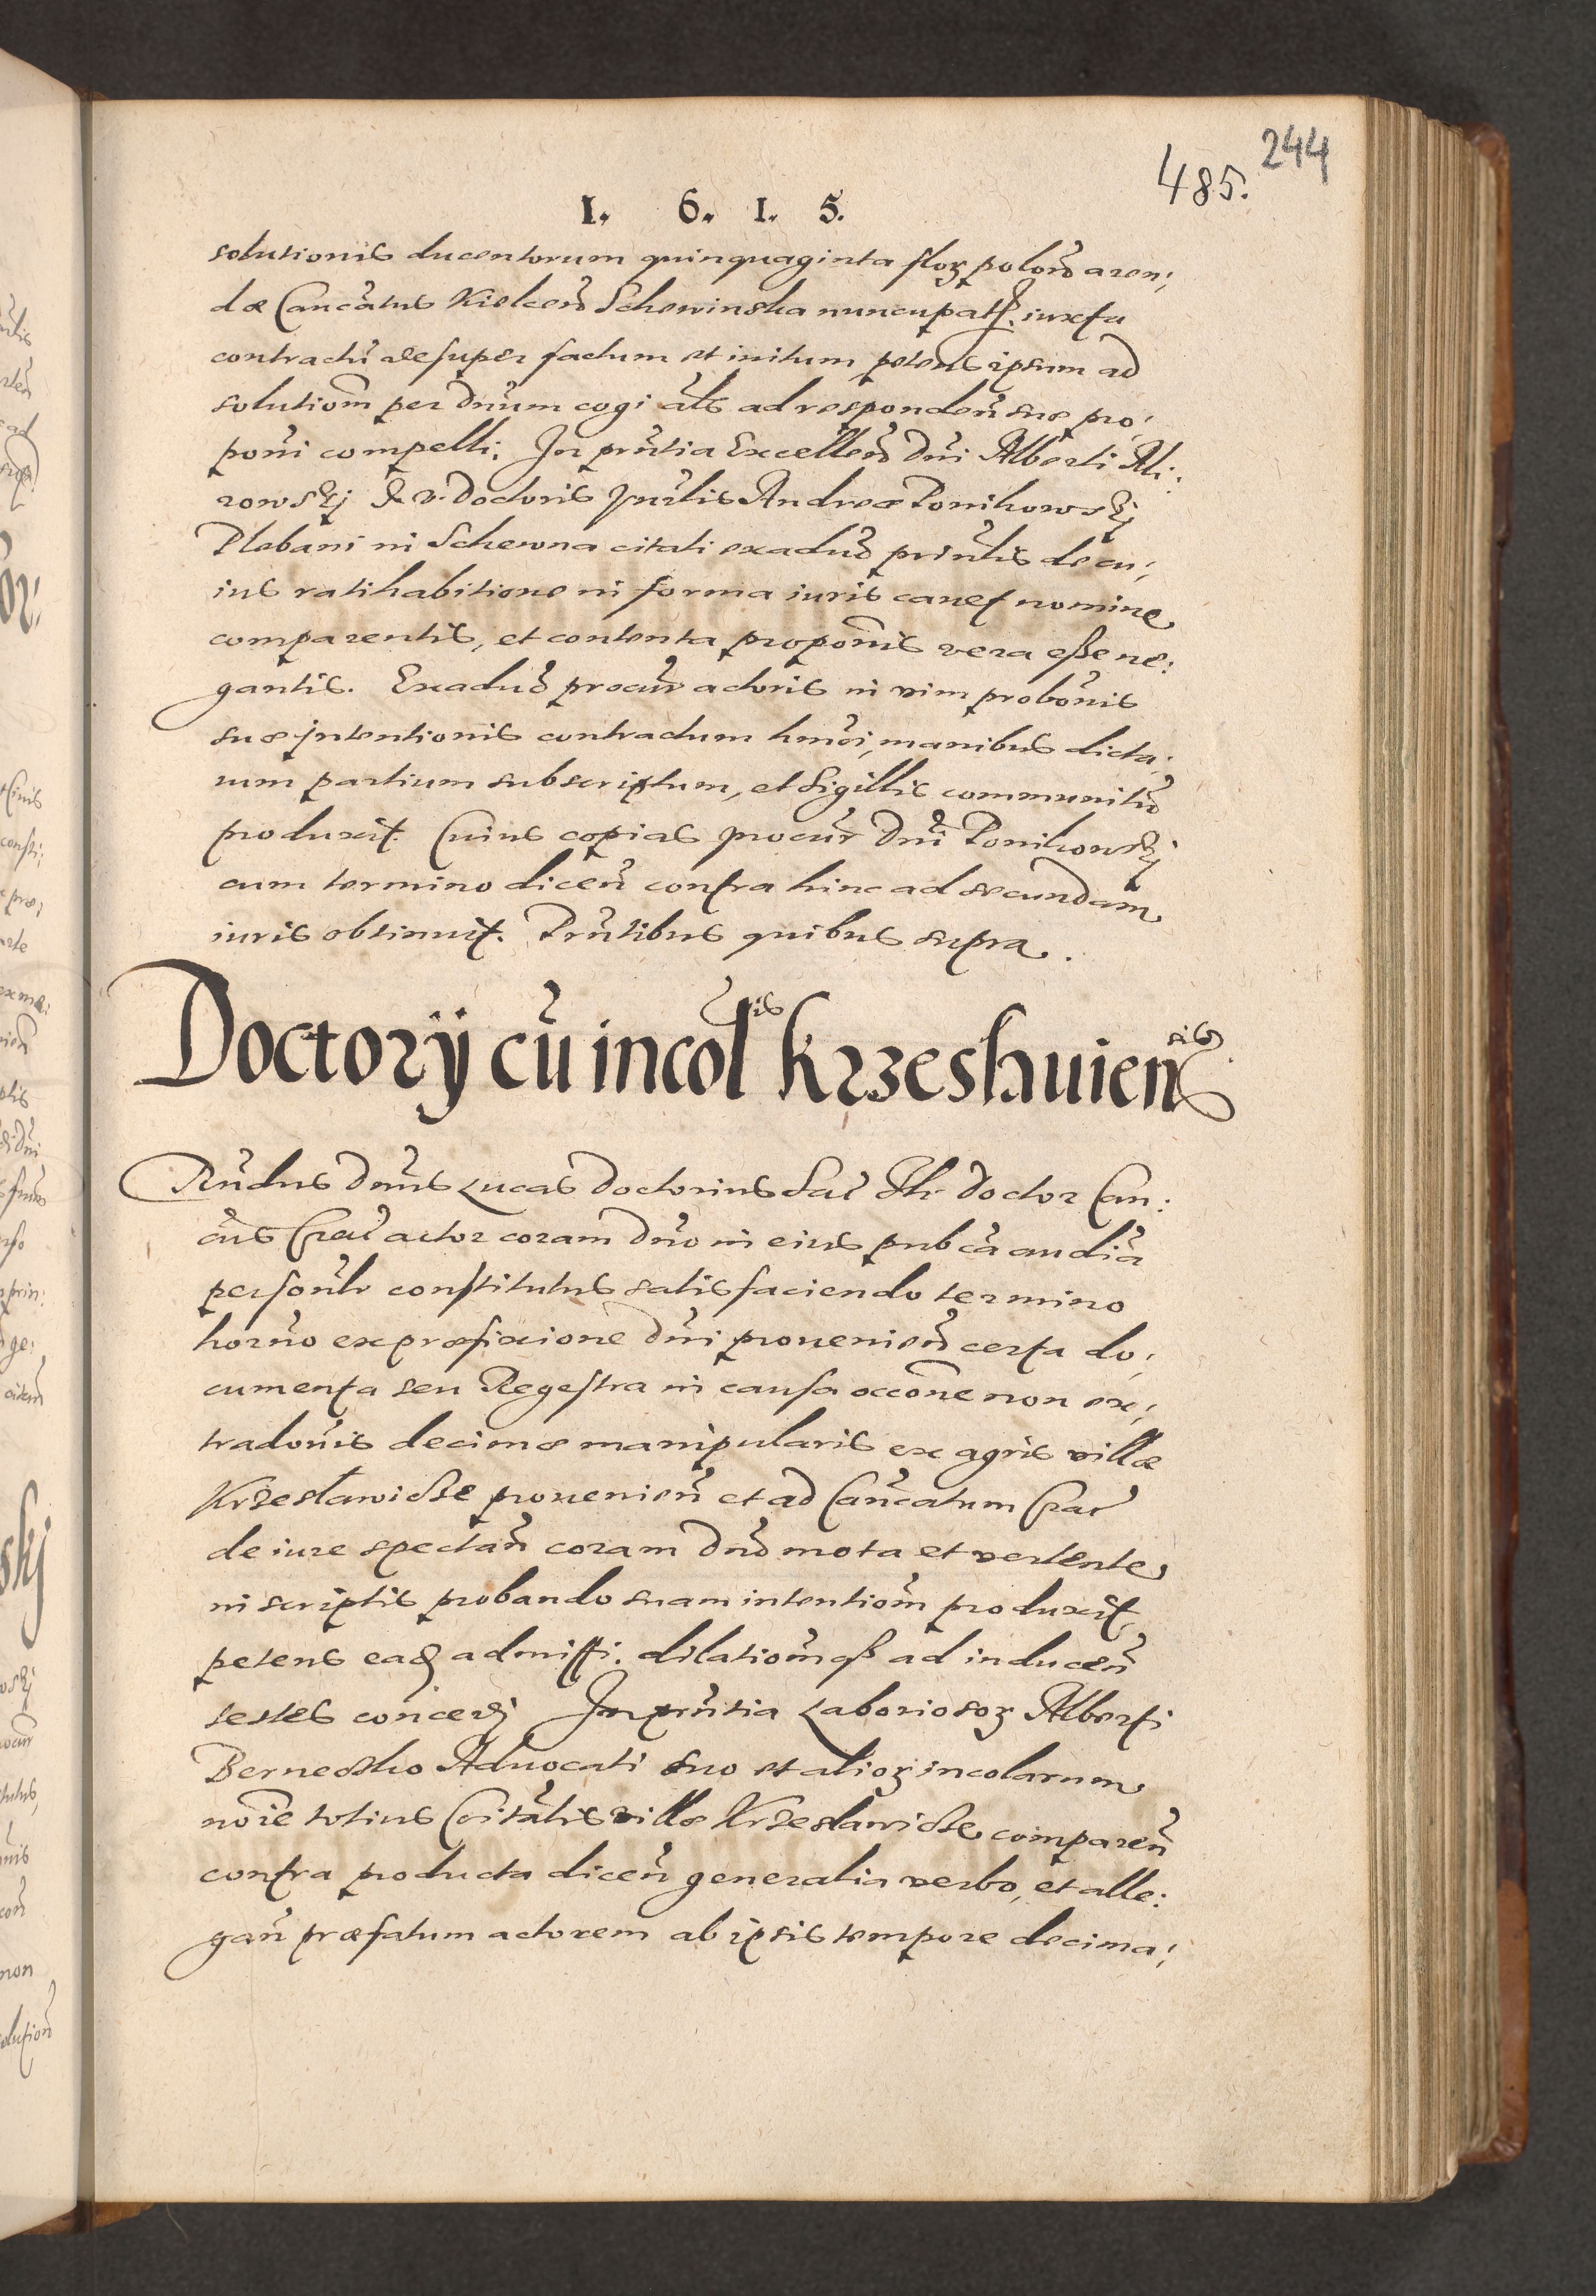 244
485.
I. 6. I. 5.
solutionis ducentorum quinquaginta floꝝ polon̄ aren;
dæ Canc̃atus Kielcen̄ Schewinska nuncupatꝭ. iuxta
contractũ desuper factum et initum petens ipsum ad
solutiom̃ per Dn̄um cogi al̄s ad responden̄ suæ pro;
pon̄i compelli. In pn̄tia Excellen̄ Dn̄i Alberti
rowskj &. V. Doctoris Jur̄lis Andreæ Ponikowskj
Plebani in Schewna citati ex aduõ prin̄lis de cu;
ius ratihabitione in forma iuris cauet nomine
comparentis, et contenta propon̄is vera eße ne:
gantis. Ex aduõ procur̄ actoris in vim probon̄is
suæ jntentionis contractum hm̄oi, manibus dicta;
rum partium subscriptum, et Sigillis communitũ
produxit. Cuius copias procur̄ Dn̄i Ponikowskj
cum termino dicen̄ contra hinc ad secundam
iuris obtinuit. Pn̄tibus quibus supra.
Doctorij cũ incol̄is Krzeshuien̄sibus.
Rn̄dus Dn̄us Lucas Doctorius Sac̄ Th. Doctor Can:
cus Crac̄ actor coram Dn̄o in eius pub̄ca audiã
person̄lr constitutus satisfaciendo termino
horn̄o ex præfixione Dn̄i prouenien̄ certa do;
cumenta seu Regestra in causa occōne non ex;
tradon̄is decimæ manipularis ex agris villæ
Krzesławicze prouenien̄ et ad Canc̃atum Crac̄
de iure spectan̄ coram Dn̄o mota et vertente
in scriptis probando suam intentiom̃ produxit,
petens ead̄ admitti. dilatiom̃qꝫ ad inducen̄
testes concedj In pn̄tia Laboriosoꝝ Alberti
Berneczko Aduocati suo et alioꝝ incolarum
noīe totius Cōitātis villæ Krzesławicze comparen̄
contra producta dicen̄ generalia verbo, et alle:
gan̄ præfatum actorem ab ipsis tempore decima;